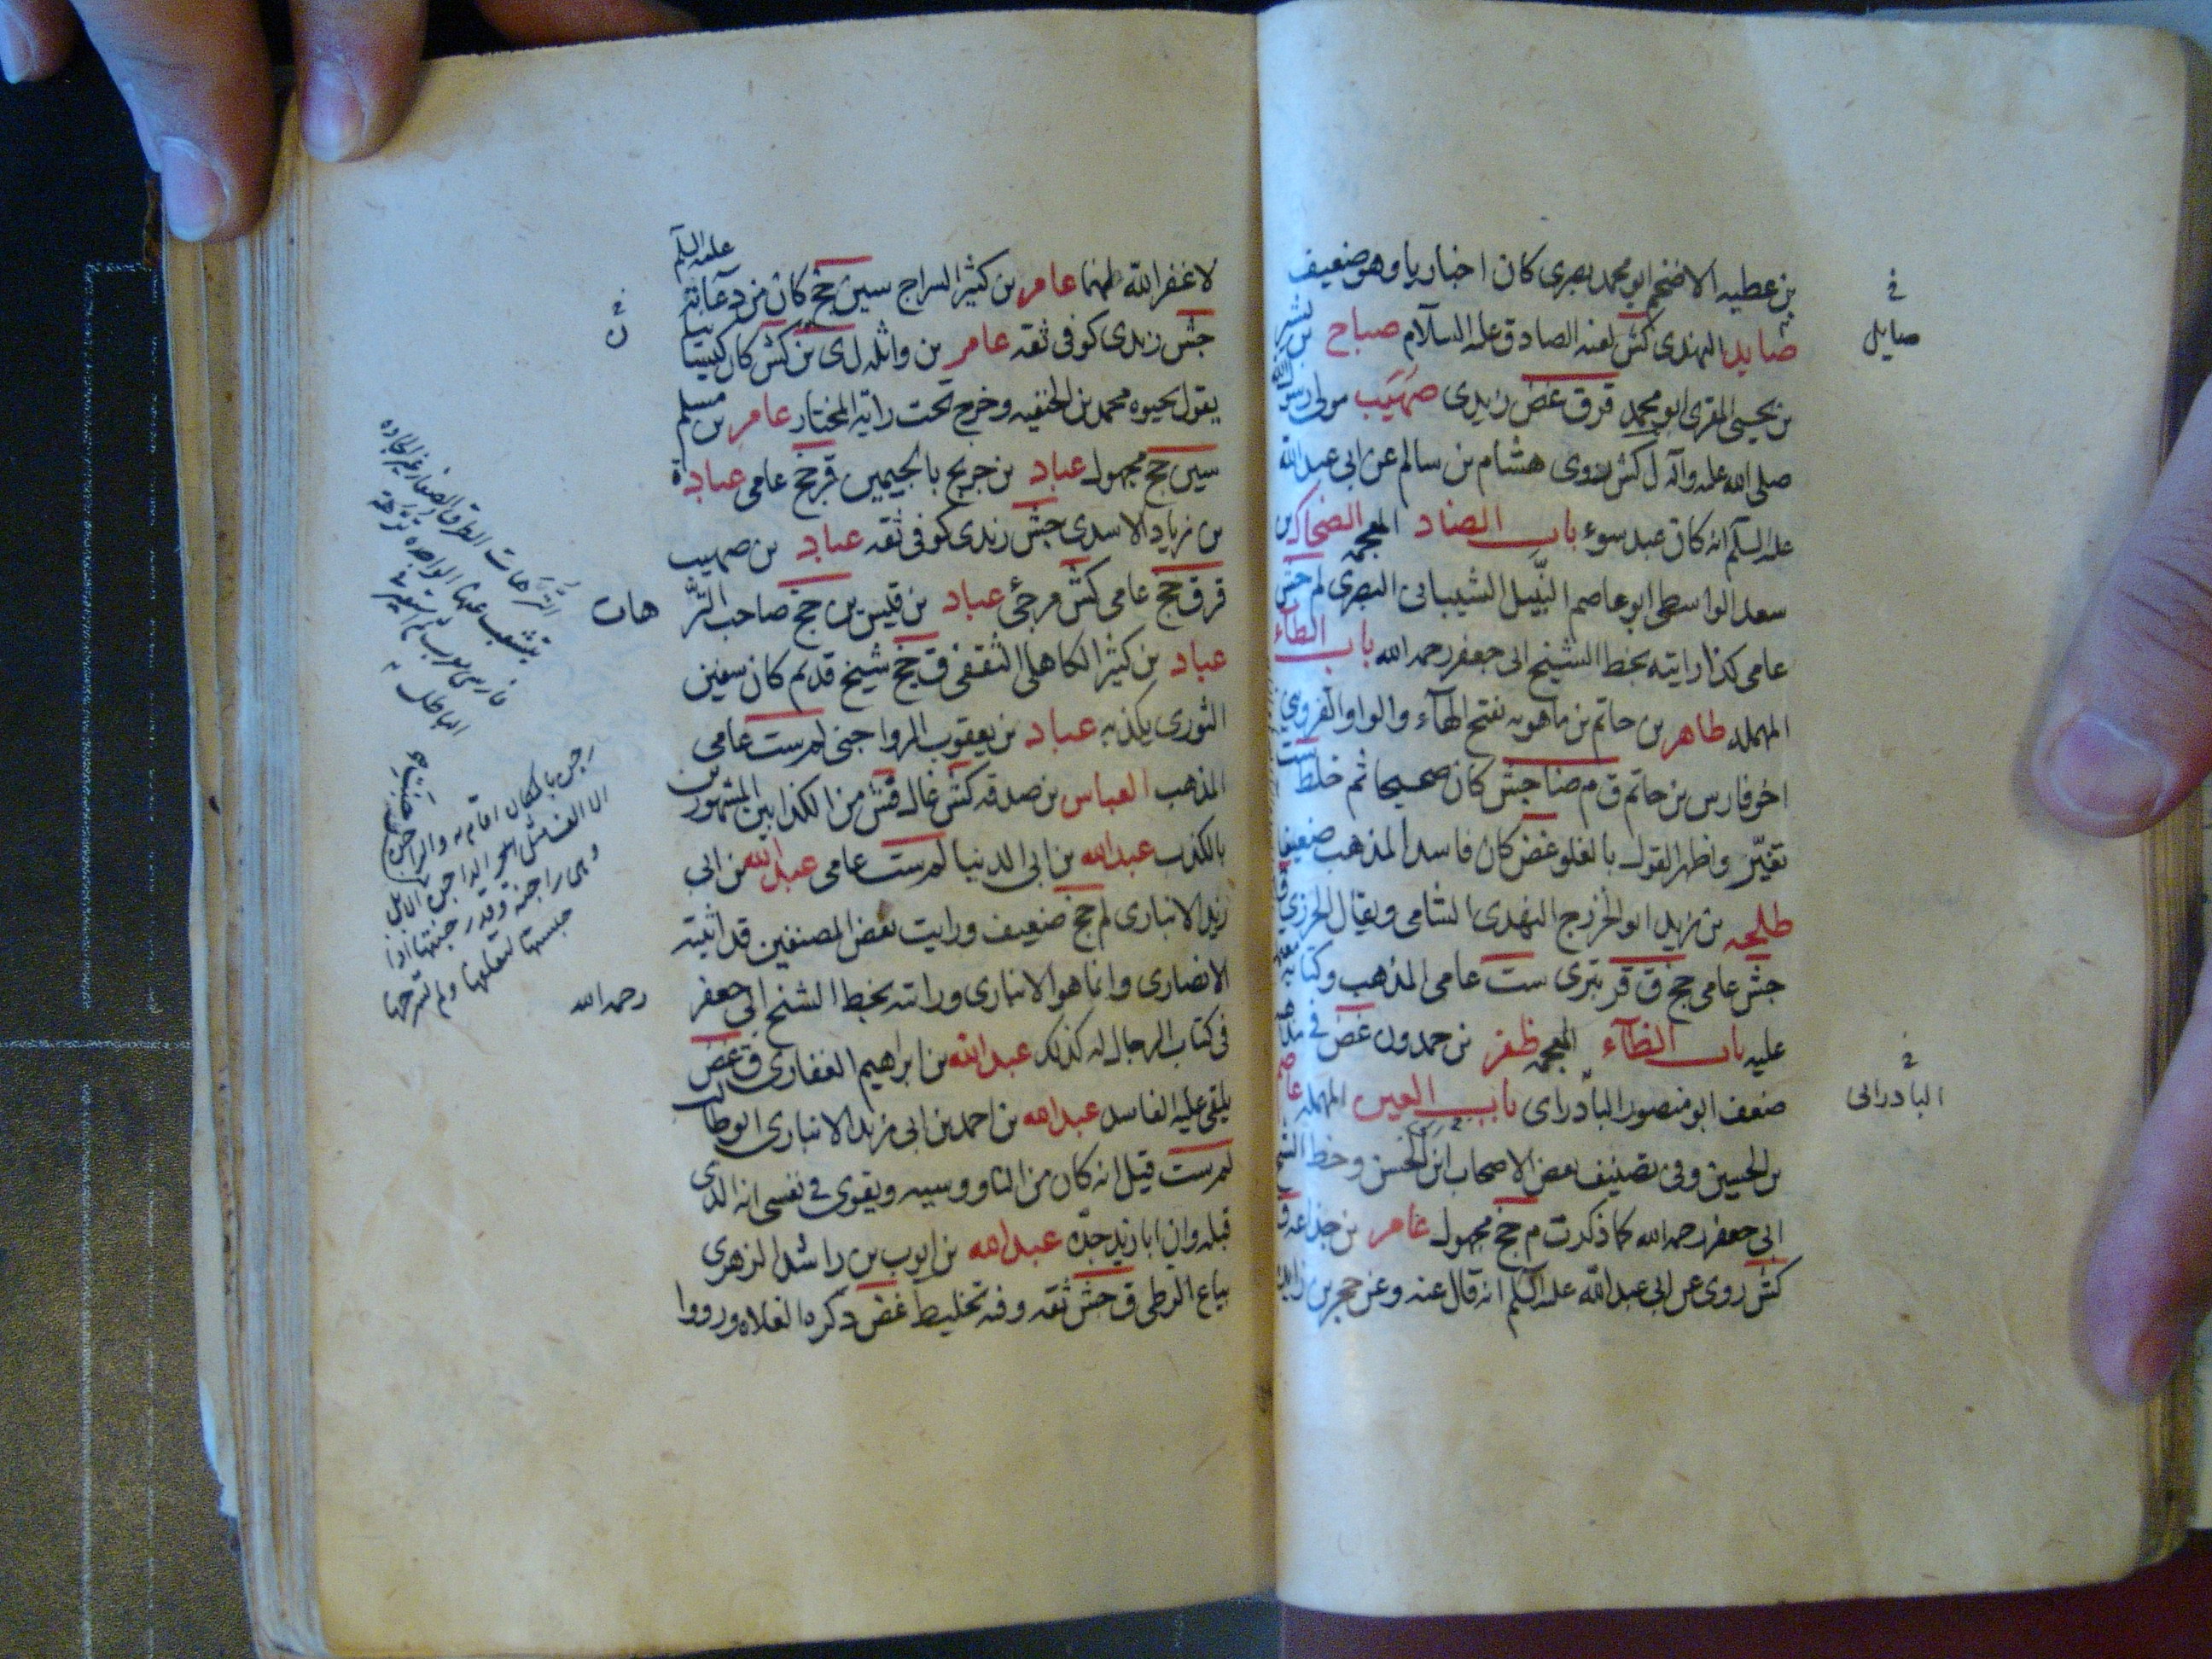 بن عطيه الاضخم ابو محمد بصرى كان اخباريا وهو ضعيف
صايد النهدى كش لعنه الصادق علىه السلام صباح بن بشر
بن يحيى المقرى ابو محمد قر ق غض زيدى صهيب مولى رسول الله
صلى الله علىه وآله ل كش روى هشام بن سالم عن ابى عبد الله
علىه السلم انه كان عبد سوء باب الضاد المعجمه الضحاك بن
سعد الواسطى ابو عاصم النبيل الشيبانى البصرى لم جش
عامى كذا رايته بخط الشيخ ابى جعفر رحمه الله باب الطآء
المهمله طاهر بن حاتم بن ماهويه بفتح الهآء والواو القزوينى
اخو فارس بن حاتم ق م ضا جش كان صحيحا ثم خلط ست
تغيّر واظهر القول بالغلو غض كان فاسد المذهب ضعيفا
طلحه بن زيد ابو الخزرج النهدى الشامى ويقال الخزرى
جش عامى جخ ق قر بترى ست عامى المذهب وكتابه
عليه باب الظآء المعجمه ظفر بن حمدون غض فى مذهبه
ضعف ابو منصور البادراى باب العين المهمله عاصم
بن الحسين وفى تصنيف بعض الاصحاب ابن الحسن وخط الشيخ
ابى جعفر رحمه الله كما ذكرت م جخ مجهول عامر بن جذاعه ق
كش روى عن ابى عبد الله علىه السلم انه قال عنه وعن حجر بن زايده
صايل
البادرانى
لا غفر الله لهما عامر بن كثير السراج سين جخ كان من دعاته علىه السلم
جش زيدى كوفى ثقه عامر بن واثله ل ى ين كش كان كيسانيا
يقول بحيوه محمد بن الحنفيه وخرج تحت راية المختار عامر بن مسلم
سين جخ مجهول عباد بن جريح بالجيمين قر جخ عامى عبادة
بن زياد الاسدى جش زيدى كوفى ثقه عباد بن صهيب
قر ق جخ عامى كش مرجئ عباد بن قيس ين جخ صاحب التر
هات
عباد بن كثير الكاهلى الثقفى ق جخ شيخ قديم كان سفين
الثورى يكذبه عباد بن يعقوب الرواجنى لم ست عامى
المذهب العباس بن صدقه كش غال قش من الكذابين المشهورين
بالكذب عبد الله بن ابى الدنيا لم ست عامى عبد الله بن ابى
زيد الانبارى لم جخ ضعيف ورايت بعض المصنفين قد اثبته
الانصارى وانما هو الانبارى ورايته بخط الشيخ ابى جعفر
رحمه الله
فى كتاب الرجال له كذلك عبد الله بن ابراهيم الغفارى ق غض
يلقى عليه الفاسد عبد الله بن احمد بن ابى زيد الانبارى ابو طالب
لم ست قيل انه كان من الناووسيه ويقوى فى نفسى انه الذى
قبله وان ابا زيد جدّه عبد الله بن ايوب بن راشد الزهرى
بياع الزطى ق جش ثقه وفه تخليط غض ذكره الغلاه ورووا
التُرَّهات الطرق الصغار غير الجاده
يتشعب عنها الواحدة ترهة
فارسى معرب ثم استعير فى
الباطل
رجن بالمكان اقام به والراجن